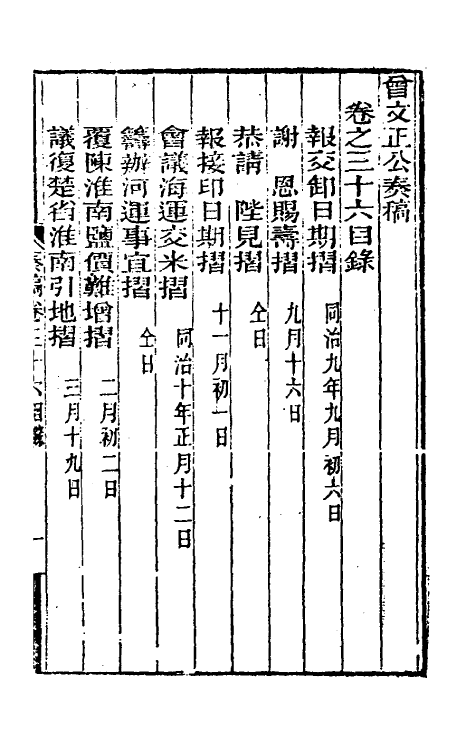 曾文正公奏稿
卷之三十六目錄
報交卸日期摺 同治九年九月初六日
謝 恩賜壽摺 九月十六日
恭請 陛見摺 仝日
報接印日期摺 十一月初一日
會議海運交米摺 同治十年正月十二日
籌辦河運事宜摺 仝日
覆陳淮南鹽價難增摺 二月初二日
議復楚省淮南引地摺 三月十九日
奏稿卷三十六目錄 一